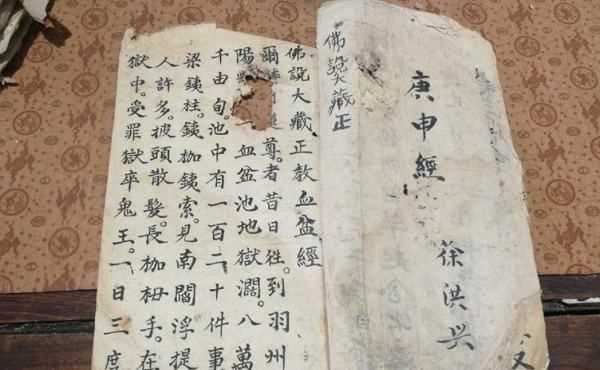 又
徐洪兴
庚申經
佛說大藏正
佛說大藏正教血盆經
爾尊。者昔日往。到羽州
陽一血盆池地獄濶。八萬
千由旬。池中有一百二十件事
梁銕柱。銕枷銕索。見南閻浮提
人許多。披頭散髮。長枷杻手。在
獄中。受罪獄卒鬼王。一日三度